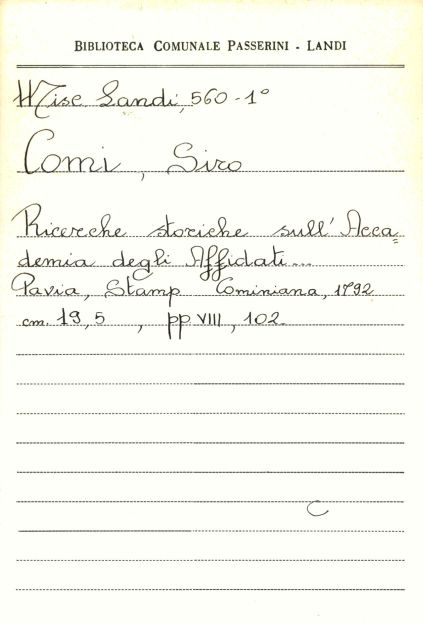 BIBLIOTECA COMUNALE PASSERINI - LANDI
Misc Landi, 560 - 1°
Comi, Siro
Ricerche storiche sull' Acca=
demia degli Affidati...
Pavia, Stamp Cominiana, 1792
cm. 19,5 , pp VIII, 102.
C